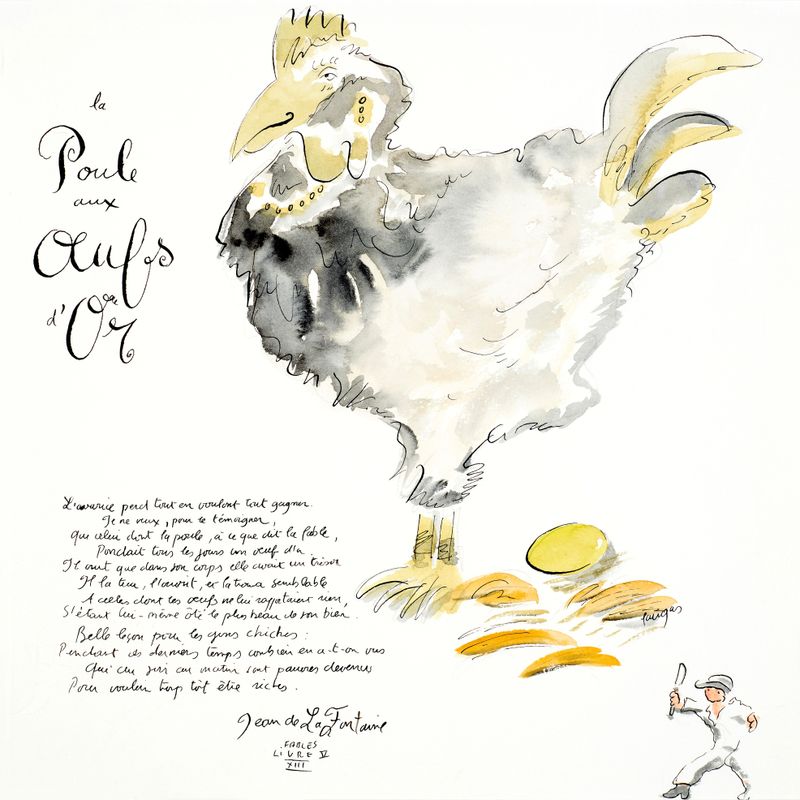 la
Poule
aux
Œufs
d'Or
L'avarice perd tout en voulant tout gagner.
Je ne veux, pour le témoigner,
que celui dont la poule, à ce que dit la fable,
Pondait tous les jours un œuf d'or.
Il crut que dans son corps elle avait un trésor
Il la tua, l'ouvrit, et la trouva semblable
A celles dont les œufs ne lui rapportaient rien,
S'étant lui-même ôté le plus beau de son bien.
Belle leçon pour les gens chiches :
Pendant ces derniers temps combien en a-t-on vus
Qui du soir au matin sont pauvres devenus
Pour vouloir trop tôt être riches.
Jean de La Fontaine
FABLES
LIVRE V
XIII